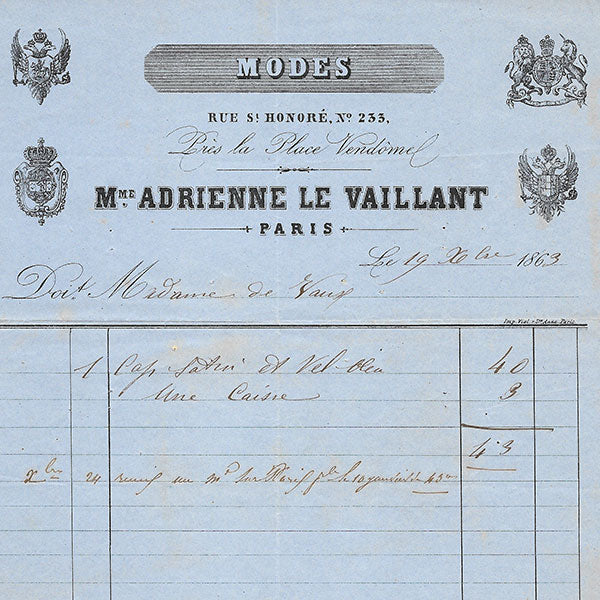 MODES
RUE St HONORÉ, No 233,
Près la Place Vendôme
Mme ADRIENNE LE VAILLANT
PARIS
Le 19 Xbre 1863
Doit Madame de Vaux
Imp. Viel r. Ste Anne Paris
1 Cap. Satin et Vel. bleu 40
Une Caisse 3
43
Xbre 24 remis un mt sur Paris 43